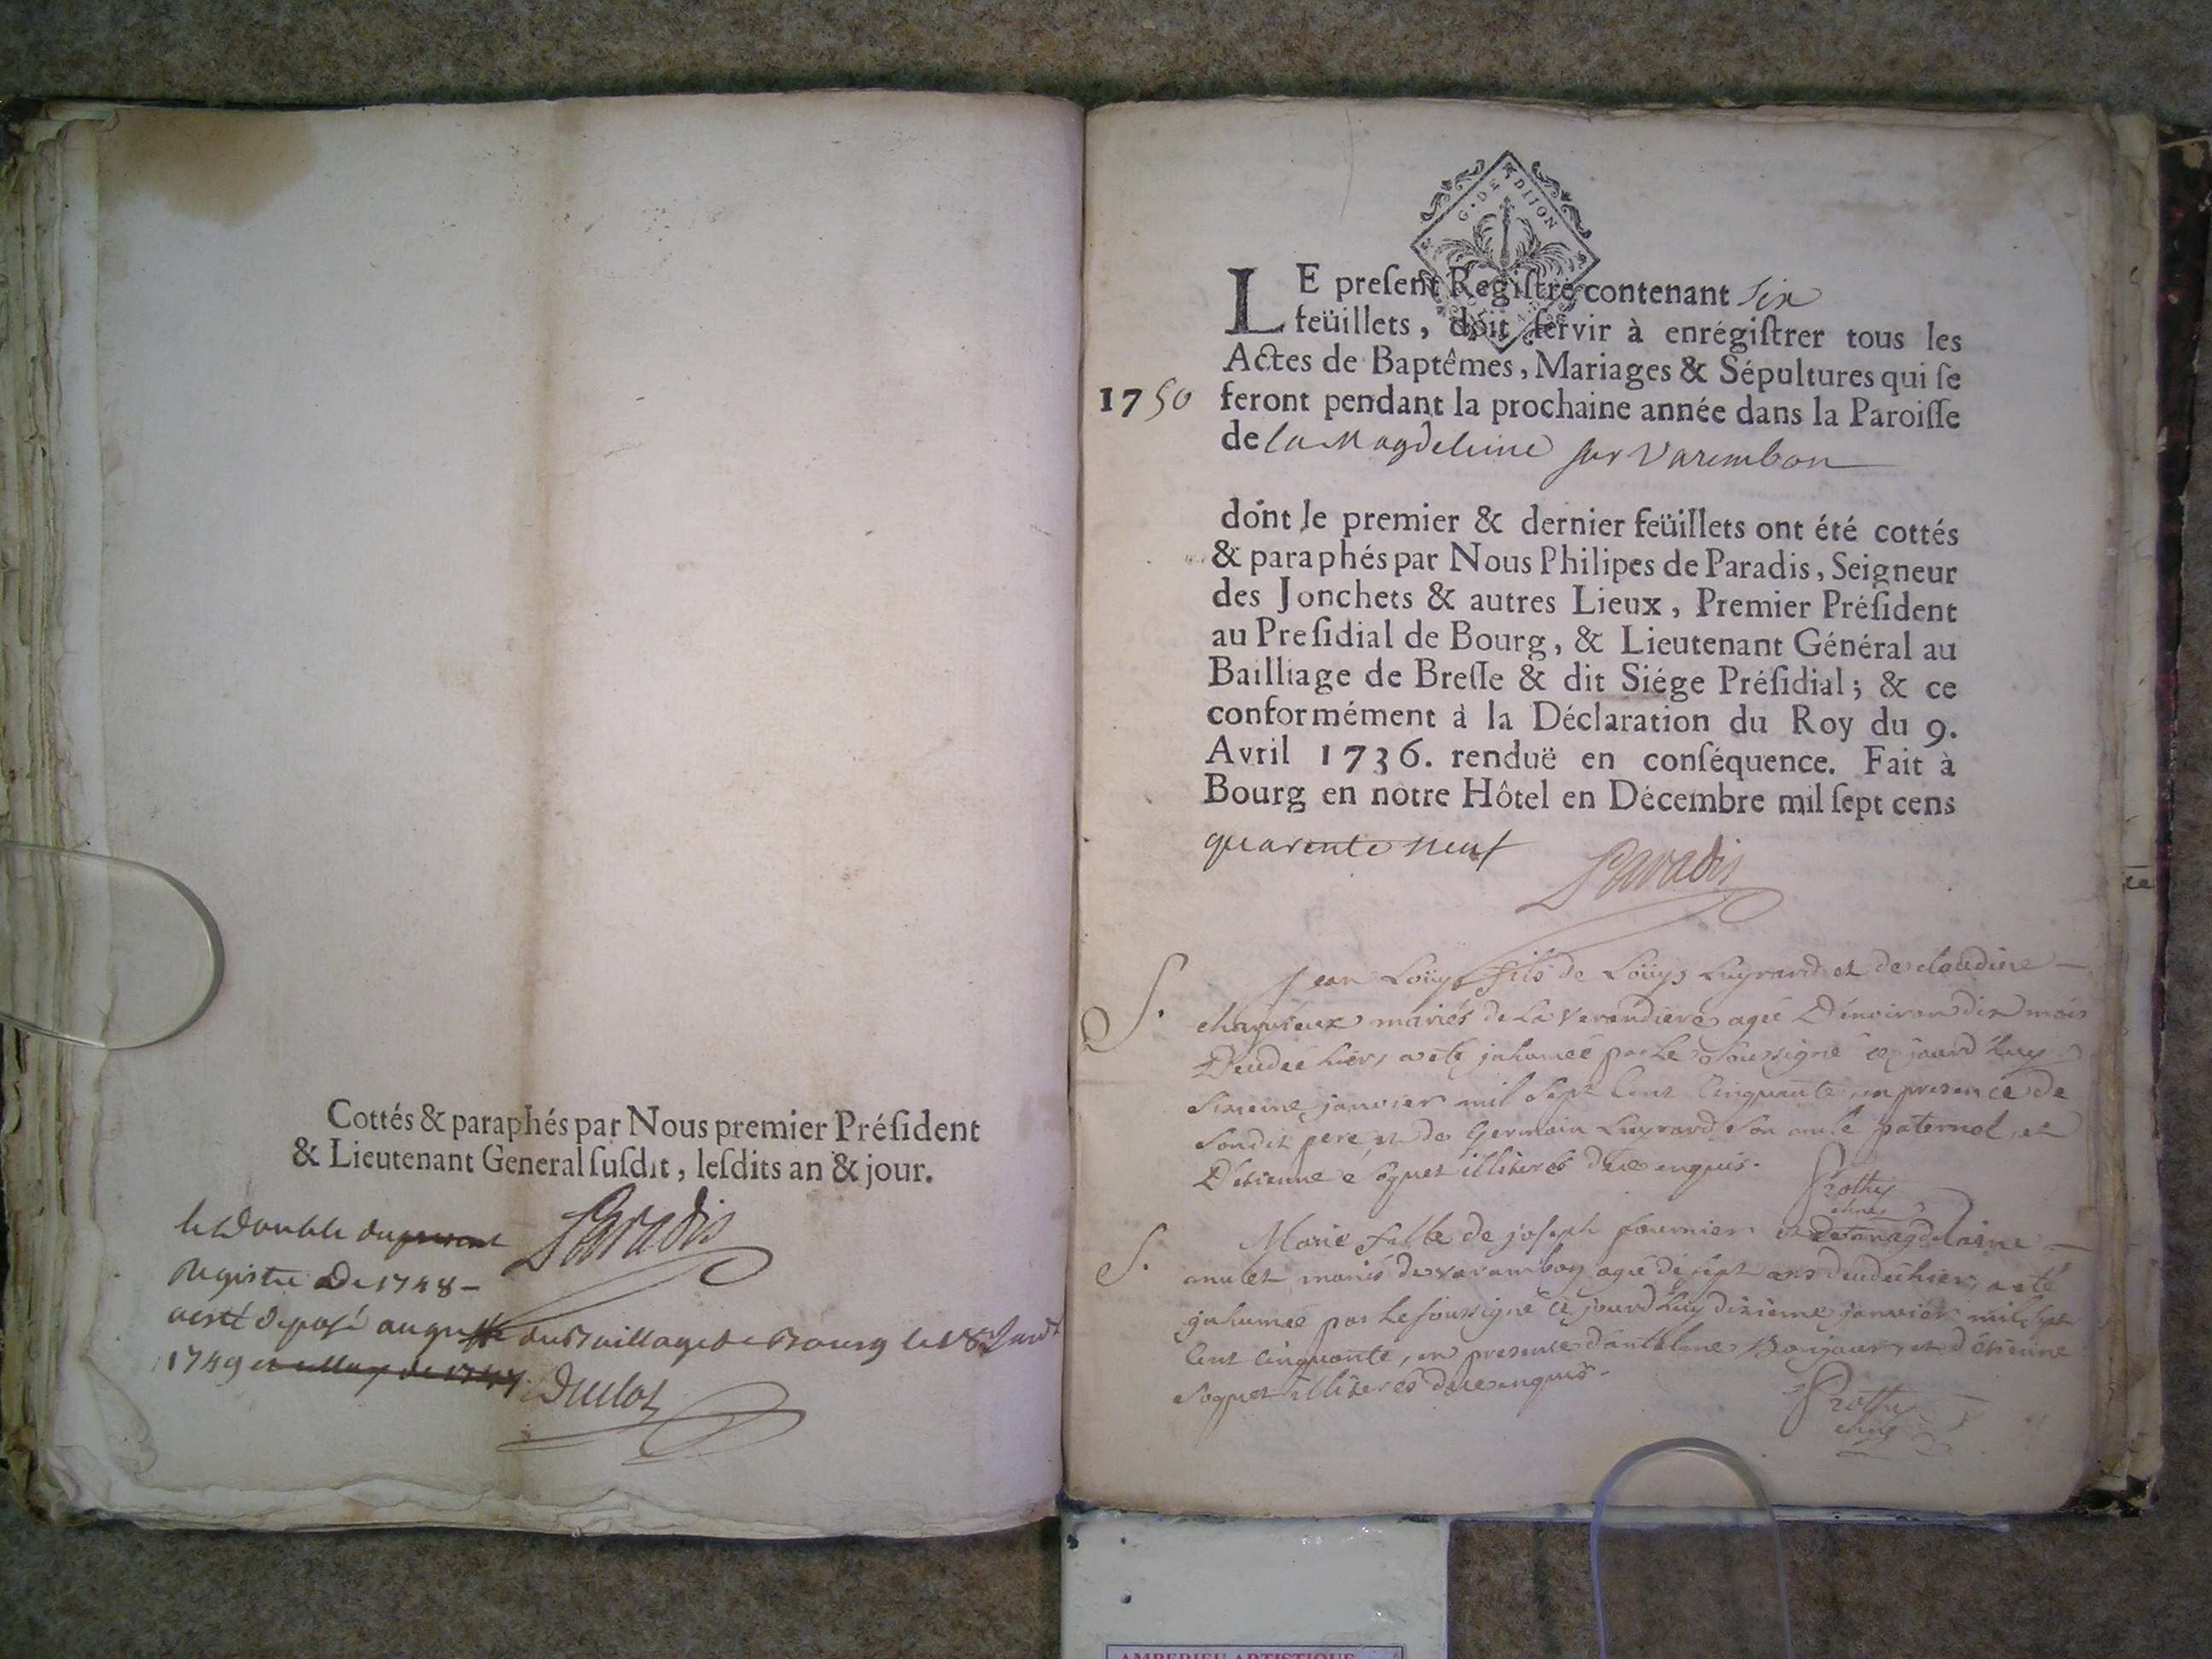 Cottés & paraphés par Nous premier Préſident
& Lieutenant General ſuſdit, leſdits an & jour.
le Double du present
Registre De 1748 –
a esté deposé au greffe du Bailliage de Bourg le 18
1749
Paradis
Duclot
G · DE DIJON
LE preſent Regiſtre contenant six
feüillets, doit ſervir à enrégiſtrer tous les
Actes de Baptêmes, Mariages & Sépultures qui ſe
1750 feront pendant la prochaine année dans la Paroiſſe
de la Magdeleine sur Varembon
dont le premier & dernier feüillets ont été cottés
& paraphés par Nous Philipes de Paradis, Seigneur
des Jonchets & autres Lieux, Premier Préſident
au Preſidial de Bourg, & Lieutenant Général au
Bailliage de Breſſe & dit Siége Préſidial; & ce
conformément à la Déclaration du Roy du 9.
Avril 1736. renduë en conſéquence. Fait à
Bourg en notre Hôtel en Décembre mil ſept cens
quarente neuf
Paradis
S. Jean Loüys fils de Loüys et de claudine
mariés de la agée D'environ dix mois
hier, a eté inhumeé par le Soussigné ce jourd'huy
Sixieme janvier mil Sept Cent Cinquante, en presence de
Sondit pere, et de Germain Son oncle paternel, et
D'etienne Soquet illiterés de ce enquis.
S. Marie fille de joseph fournier et
mariés de varambon ageé de sept ans hier, a eté
inhumeé par le soussigné ce jourd'huy dixieme janvier mil sept
Cent Cinquante, en presence d'antelme Bonjour, et d'etienne
Soquet illiterés de ce enquis.
AMBERIEU ARTISTIQUE